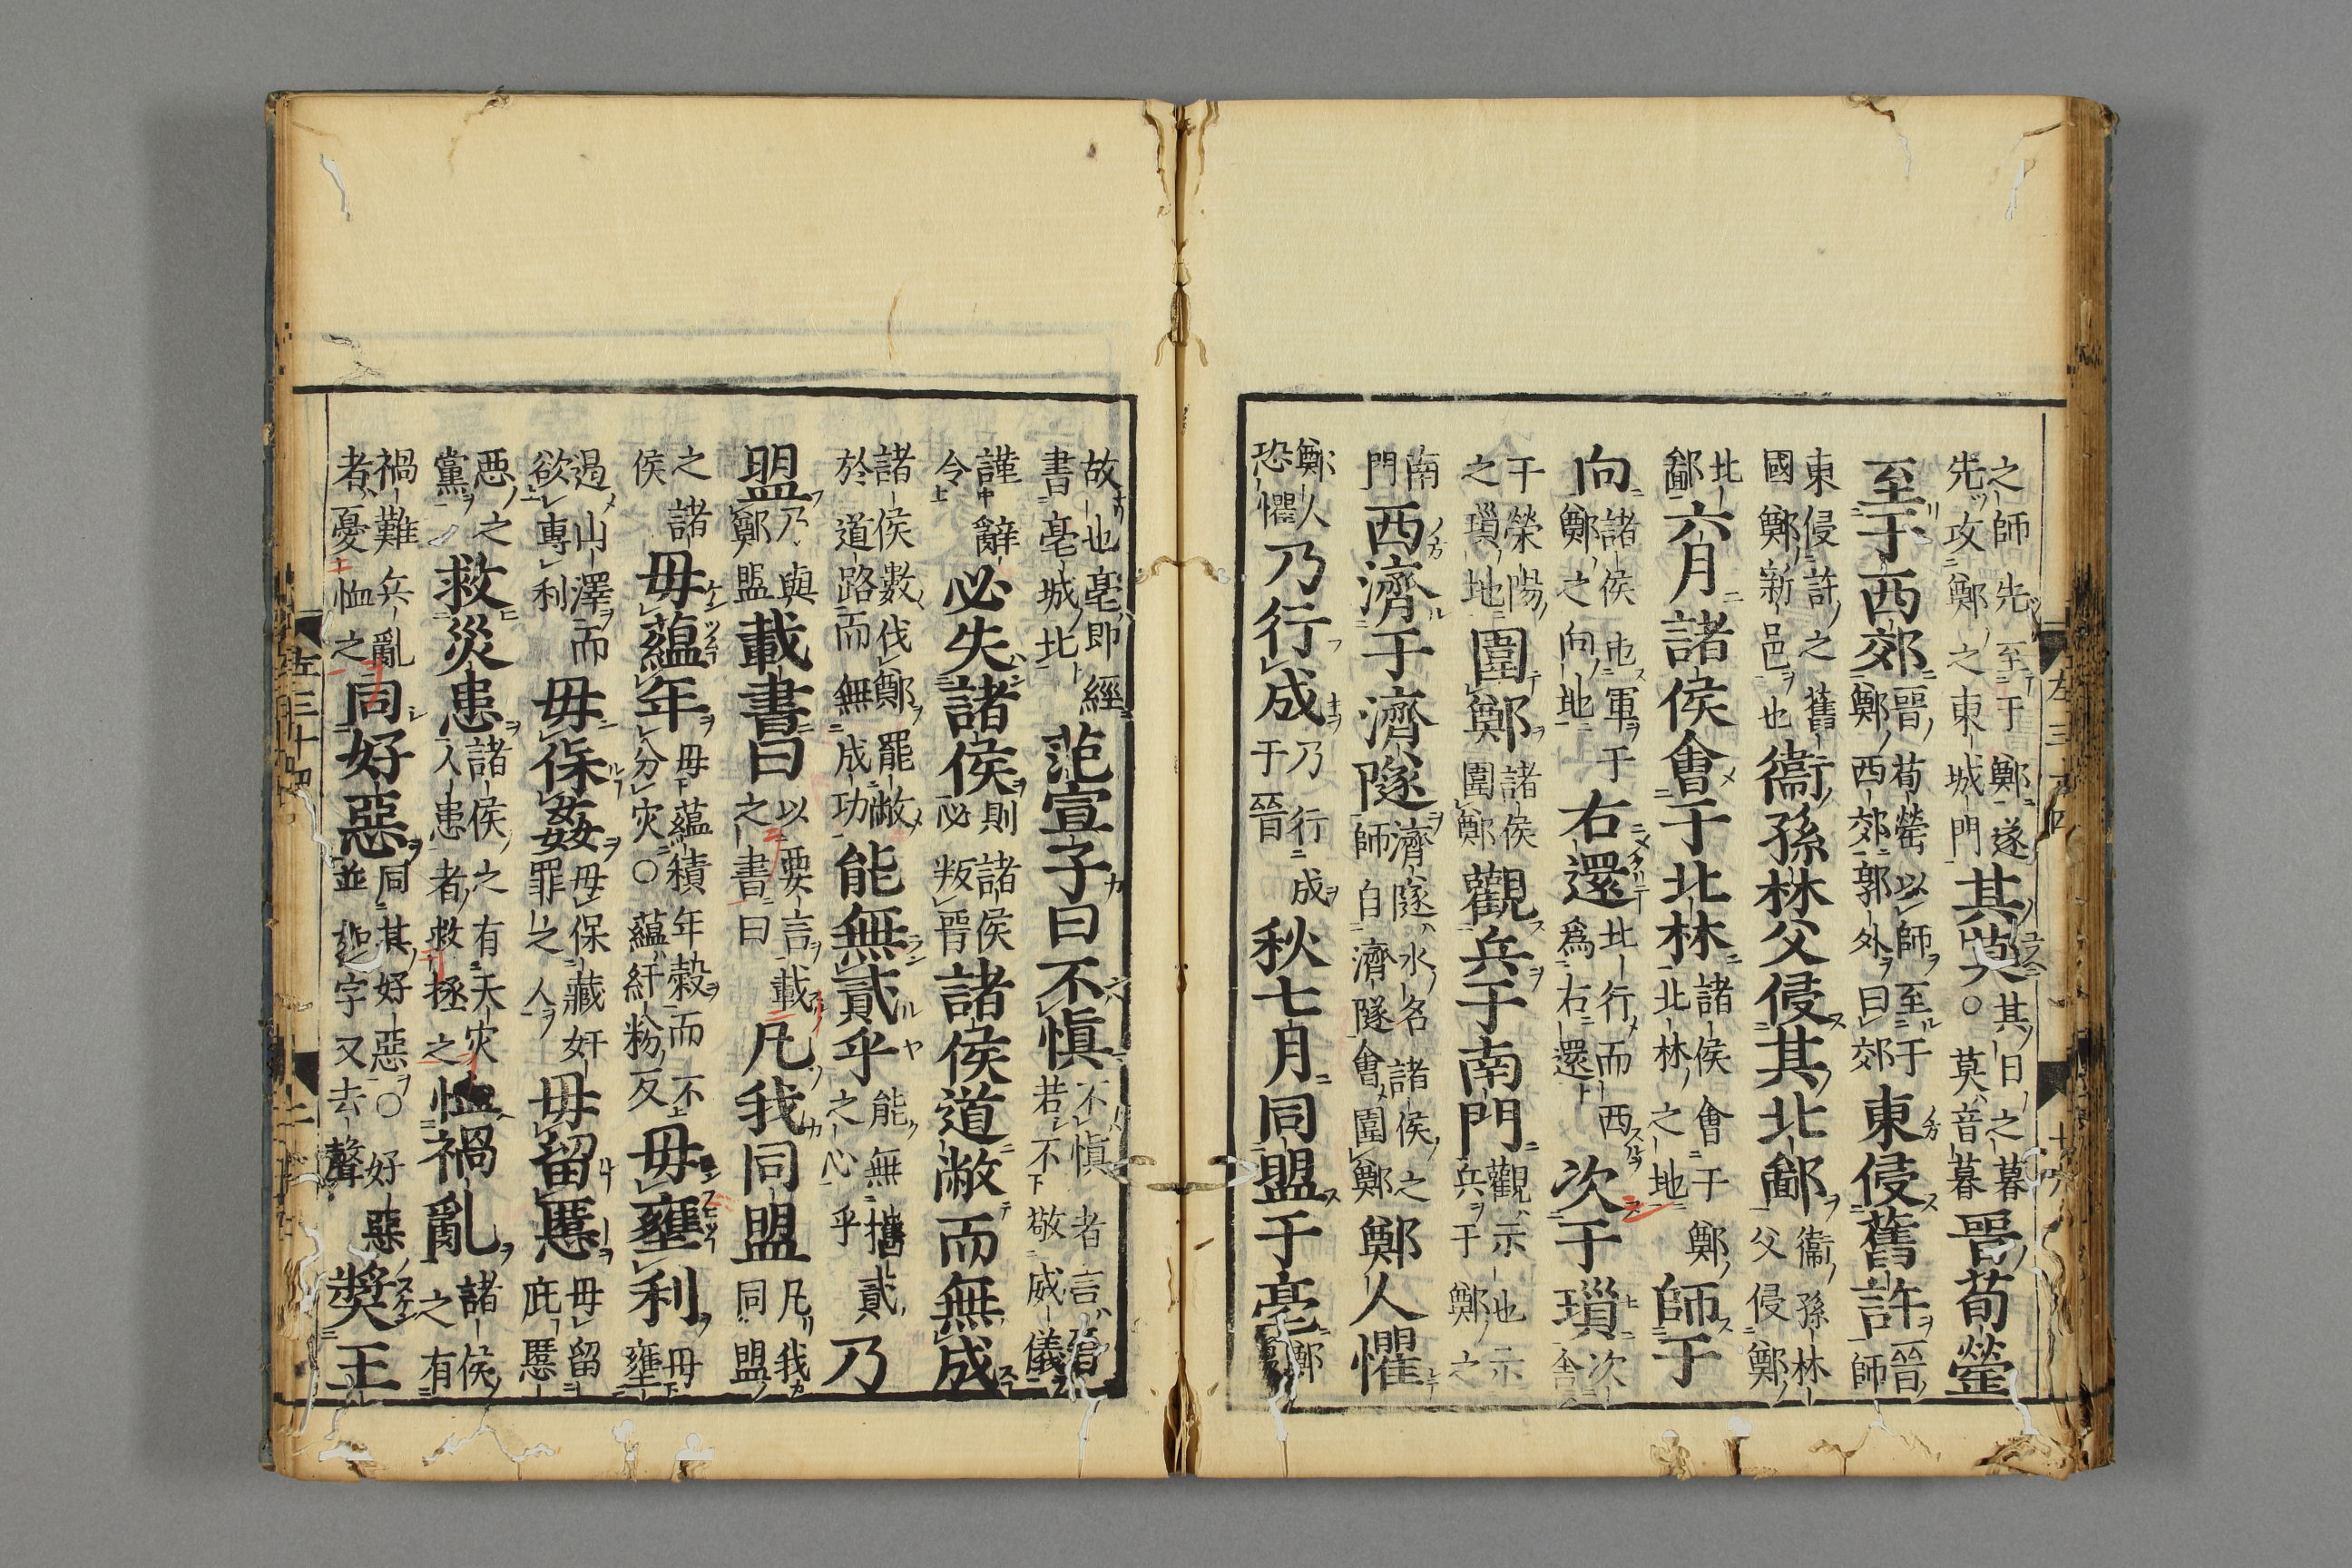 之師先至于鄭遂先攻鄭之東城門其莫其日之暮○莫音暮晉荀罃
至于西郊晉荀罃以師至于鄭西郊郭外曰郊東侵舊許晉師
東侵許之舊國鄭新邑也衞孫林父侵其北鄙衞孫林父侵鄭
北鄙六月諸侯會于北林諸侯會于鄭北林之地師于
向諸侯屯軍于鄭之向地右還北行而西爲右還次于瑣次舍
于滎陽之瑣地圍鄭諸侯圍鄭觀兵于南門觀示也示兵于鄭之
南門西濟于濟隧濟隧水名諸侯之師自濟隧會圍鄭鄭人懼
鄭人恐懼乃行成乃行成于晉秋七月同盟于亳鄭
故也亳即經書亳城北范宣子曰不慎不慎者言晉若不敬威儀
謹辭令必失諸侯則諸侯必叛晉諸侯道敝而無成
諸侯數伐鄭罷敝於道路而無成功能無貳乎能無攜貳之心乎乃
盟乃與鄭盟載書曰以要言載之書曰凡我同盟凡我同盟
之諸侯毋蘊年毋蘊積年穀而不分灾○蘊紆粉反毋壅利毋壅
遏山澤而欲專利毋保姦毋保藏奸罪之人毋留慝毋留庇慝
惡之黨救災患諸侯之有天灾人患者救拯之恤禍亂諸侯之有
禍難兵亂者憂恤之同好惡同其好惡○好惡並如字又去聲奬王
左三十四
二